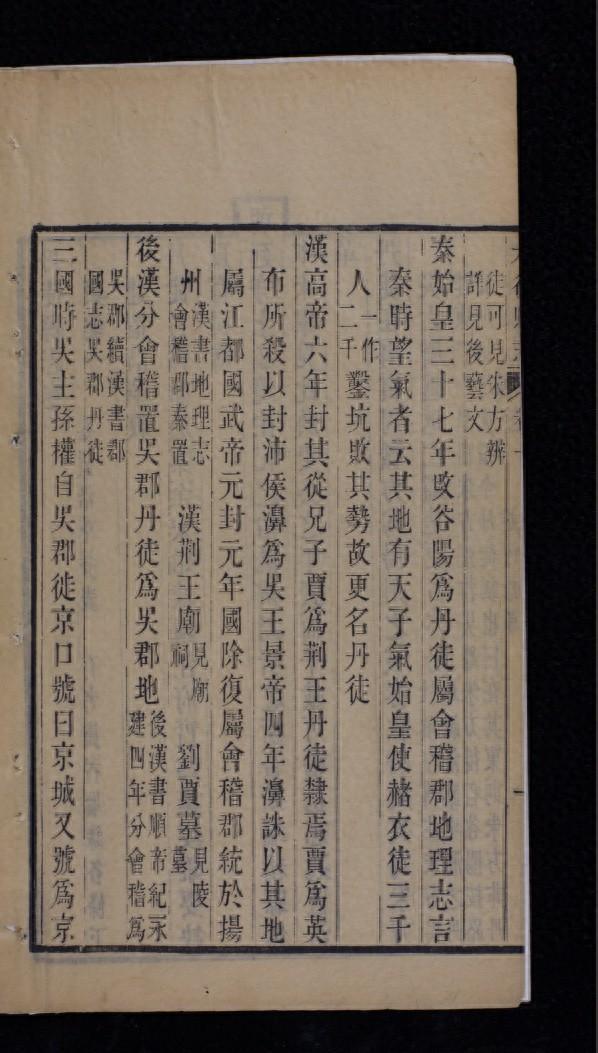 徒可見朱方辨
詳見後藝文
秦始皇三十七年改谷陽為丹徒屬會稽郡地理志言
秦時望氣者云其地有天子氣始皇使赭衣徒三千
人一作二千鑿坑敗其勢故更名丹徒
漢高帝六年封其從兄子賈為荆王丹徒隸焉賈為英
布所殺以封沛侯濞為吳王景帝四年濞誅以其地
屬江都國武帝元封元年國除復屬會稽郡統於揚
州漢書地理志會稽郡秦置 漢荆王廟見廟祠 劉賈墓見陵墓
後漢分會稽置吳郡丹徒為吳郡地後漢書順帝紀永建四年分會稽為
吳郡續漢書郡國志吳郡丹徒
三國時吳主孫權自吳郡徙京口號曰京城又號為京